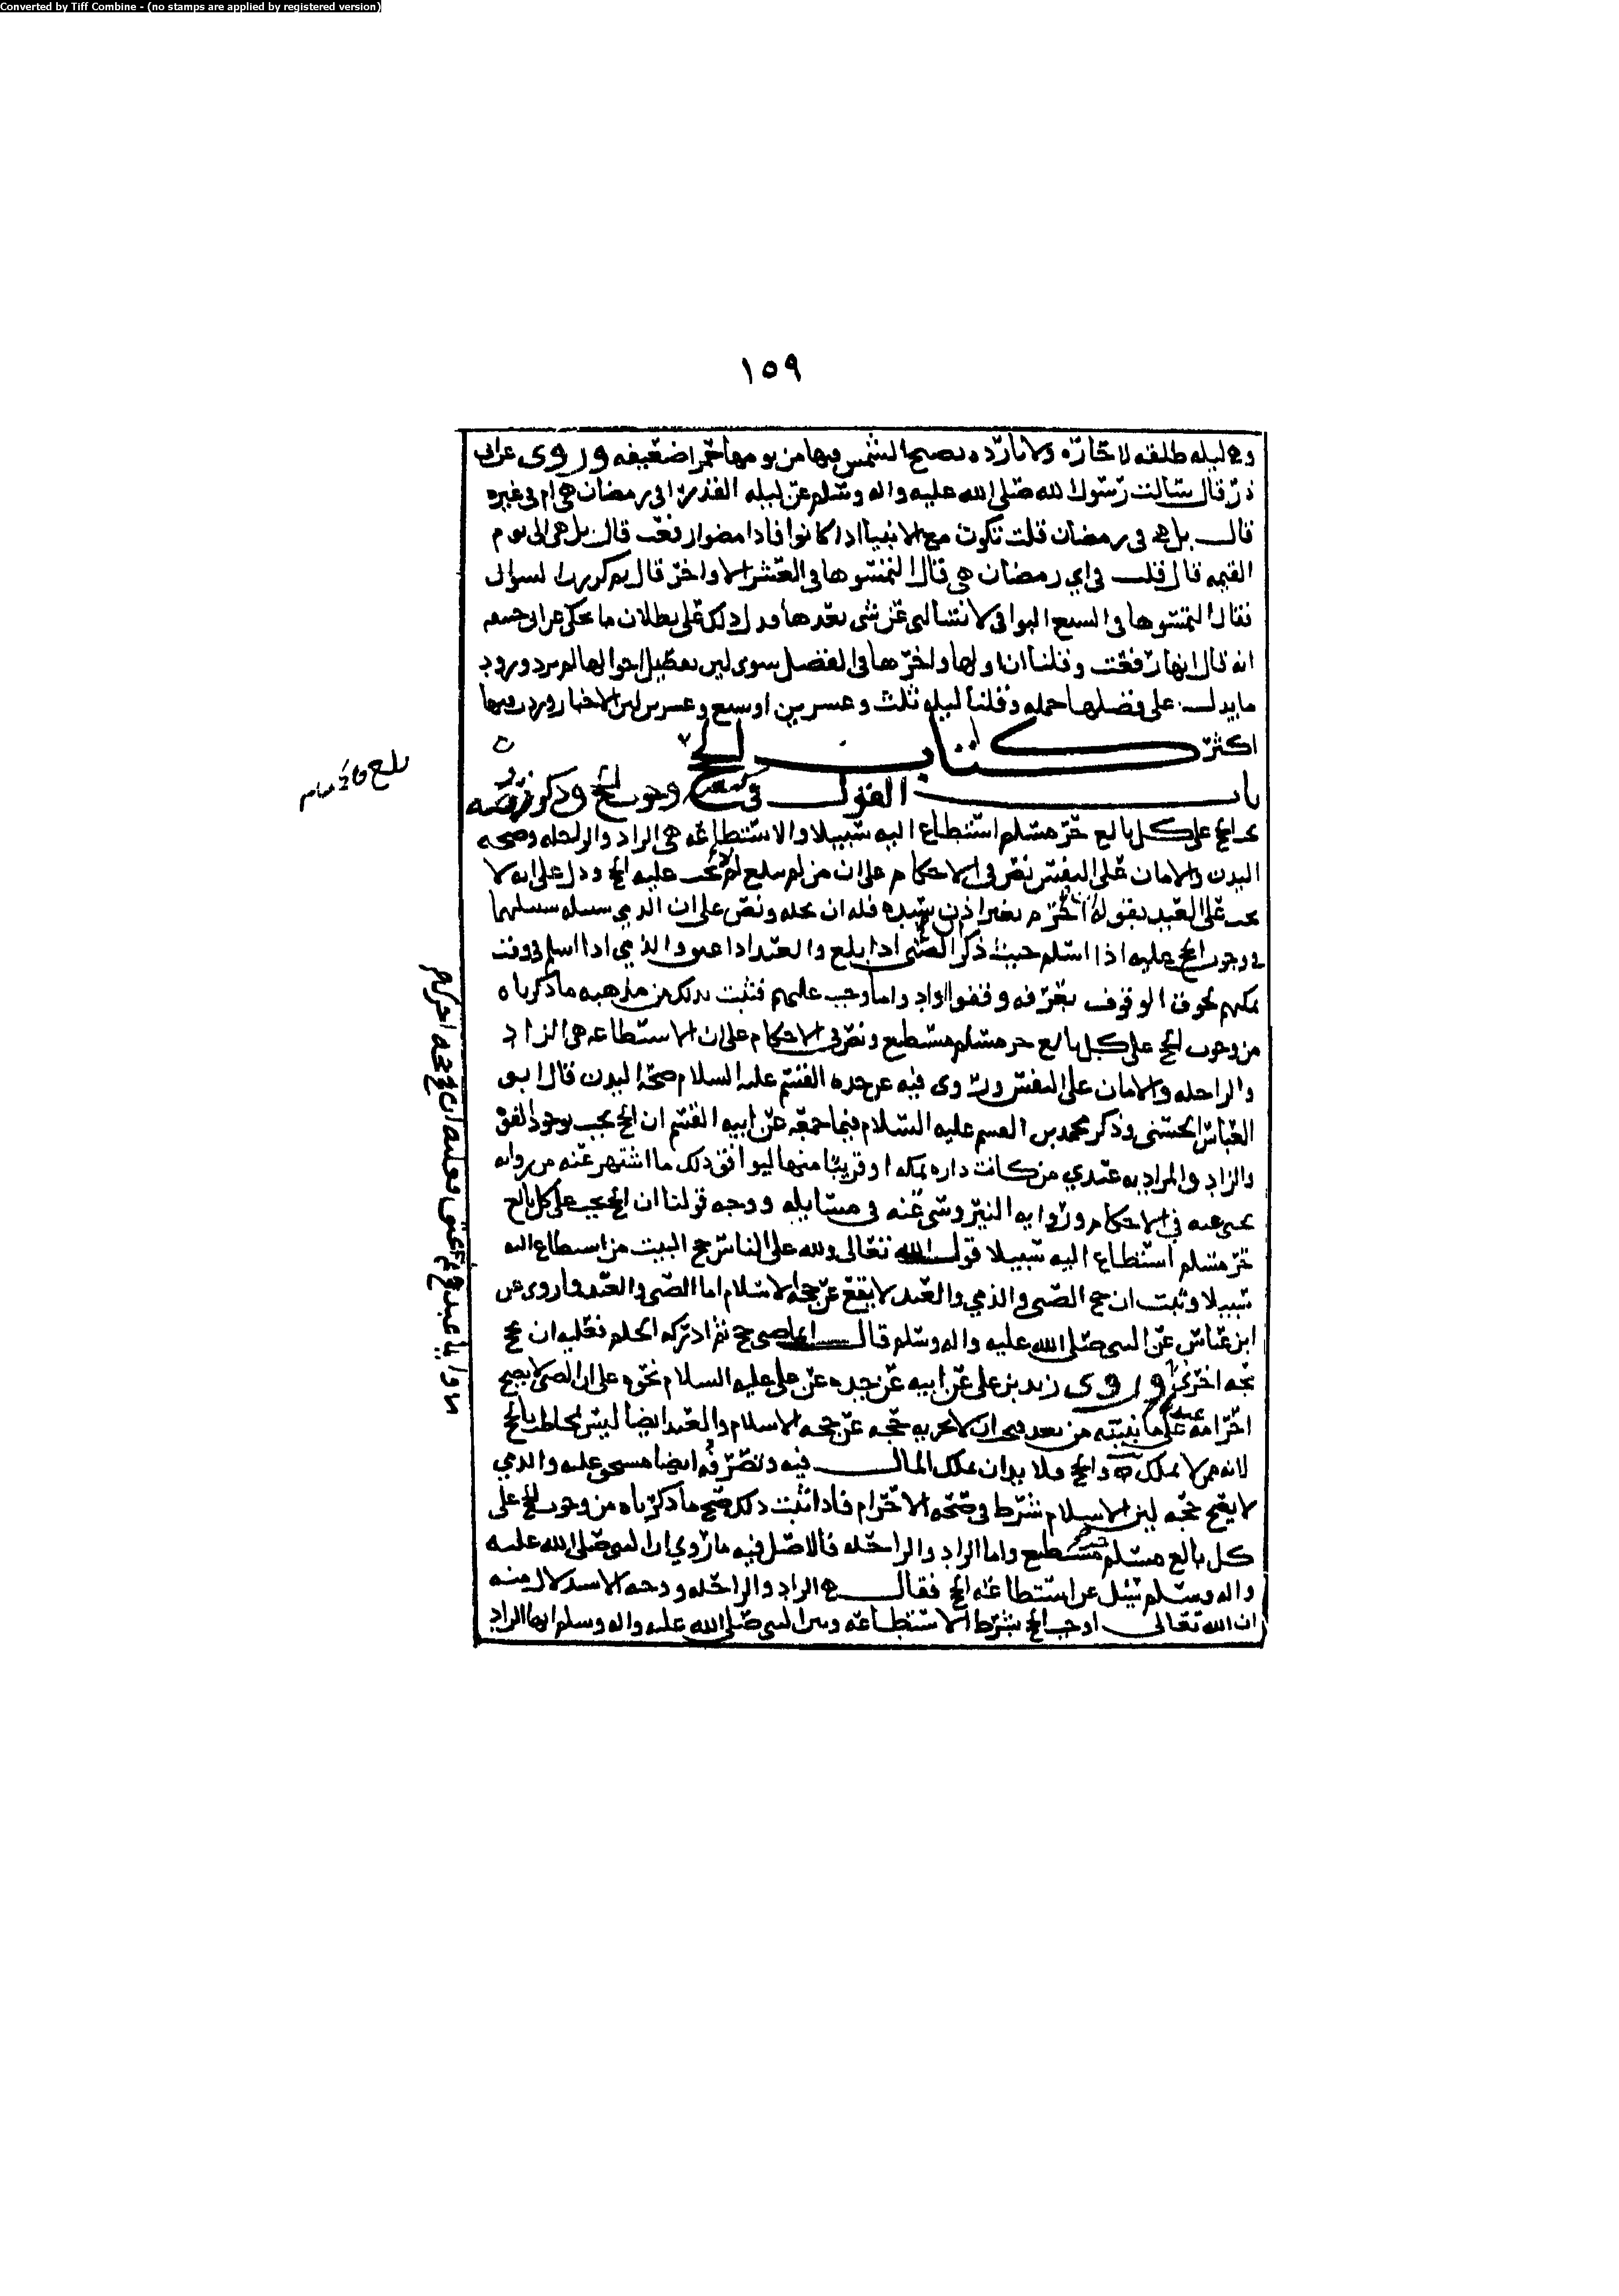 Converted by Tiff Combine - (no stamps are applied by registered version)
١٥٩
وهي ليله طلقه لا حاره ولا بارده تصبح الشمس فيها من يومها حمرا ضعيفه وروى عن ابي
ذر قال سالت رسول الله صلى الله عليه واله وسلم عن ليله القدر افي رمضان هي ام في غيره
قال بل هي في رمضان قلت تكون مع الانبيا اذا كانوا فاذا مضوا رفعت قال بل هي الى يوم
القيمه قال قلت في اي رمضان هي قال التمسوها في العشر الاواخر قال ثم كررت السوال
فقال التمسوها في السبع البواقي لا تسالني عن شي بعدها فدل ذلك على بطلان ما يحكى عن ابي حنيفه
انه قال انها رفعت وقلنا ان اولها واخرها في الفضل سوى لين تفضيل احوالها لم يرد وورود
ما يدل على فضلها جمله وقلنا ليله ثلث وعشرين او سبع وعشرين لين الاخبار وردت فيها
اكثر كتاب الحج
باب القول في وجوب الحج وذكر فروضه
يجب الحج على كل بالع حر مسلم استطاع اليه سبيلا والاستطاعه هي الزاد والراحله وصحه
البدن والامان على النفس نص في الاحكام على ان من لم يبلع لم يجب عليه الحج ودل على انه لا
يجب على العبد بقوله اذا احرم بغير اذن سيده فله ان يحله ونص على ان الذمي سبيله سبيلهما
في وجوب الحج عليه اذا اسلم حيث ذكر الصبي اذا بلع والعبد اذا عتق والذمي اذا اسلم في وقت
يمكنهم لحوق الوقوف بعرفه وقفوا وادوا ما وجب عليهم فثبت بذلك من مذهبه ما ذكرناه
من وجوب الحج على كل بالع حر مسلم مستطيع ونص في الاحكام على ان الاستطاعه هي الزاد
والراحله والامان على النفس وروى فيه عن جده القسم عليه السلام صحه البدن قال ابو
العباس الحسني وذكر محمد بن القسم عليه السلام فيما جمعه عن ابيه القسم ان الحج يجب بوجود القوه
والزاد والمراد به عندي من كانت داره بمكه او قريبا منها ليوافق ذلك ما اشتهر عنه من روايه
يحيى عنه في الاحكام وروايه النيروسي عنه في مسايله ووجه قولنا ان الحج يجب على كل بالع
حر مسلم استطاع اليه سبيلا قول الله تعالى ولله على الناس حج البيت من استطاع اليه
سبيلا وثبت ان حج الصبي والذمي والعبد لا يقع عن حجه الاسلام اما الصبي والعبد فلما روى عن
ابن عباس عن النبي صلى الله عليه واله وسلم قال ايما صبي حج ثم ادركه الحلم فعليه ان يحج
حجه اخرى وروى زيد بن علي عن ابيه عن جده عن علي عليه السلام نحوه على ان الصبي لا يصح
احرامه على ما نبينه من بعد فيجب ان لا تجزيه حجه عن حجه الاسلام والعبد ايضا ليس يخاطب بالحج
لانه ممن لا يملك والحج ولا بد ان يملك المال فيه وتصرفه ايضا مستحق عليه والذمي
لا يصح حجه لين الاسلام شرط في صحه الاحرام فاذا ثبت ذلك صح ما ذكرناه من وجوب الحج على
كل بالع مسلم حر مستطيع واما الزاد والراحله فالاصل فيه ما روي ان النبي صلى الله عليه
واله وسلم سيل عن استطاعه الحج فقال هي الزاد والراحله ووجه الاستدلال منه
ان الله تعالى اوجب الحج بشرط الاستطاعه وبين النبي صلى الله عليه واله وسلم انها الزاد